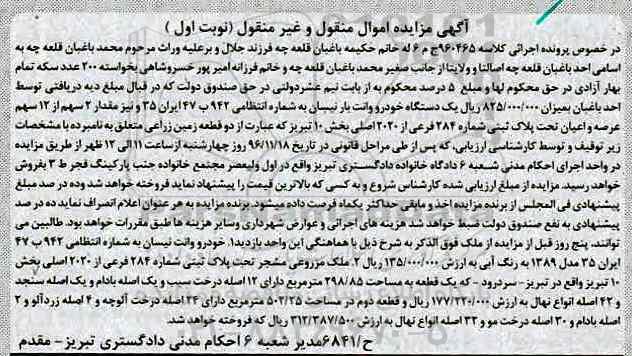 آگهی مزایده اموال منقول و غیر منقول (نوبت اول )
در خصوص پرونده اجرائی کلاسه ۹۶۰۴۶۵ج م ۶ له خانم حکیمه باغبان قلعه چه فرزند جلال و برعلیه وراث مرحوم محمد باغبان قلعه چه به
اسامی احد باغبان قلعه چه اصالتا و ولایتا از جانب صغیر محمد باغبان قلعه چه و خانم فرزانه امیر پور خسروشاهی بخواسته ۲۰۰ عدد سکه تمام
بهار آزادی در حق محکوم لها و مبلغ ۵ درصد محکوم به از بابت نیم عشردولتی در حق صندوق دولت که در قبال مبلغ دیه دریافتی توسط
احد باغبان بمیزان ۸۲۵/۰۰۰/۰۰۰ ریال یک دستگاه خودرو وانت بار نیسان به شماره انتظامی ۹۴۲ ب ۴۷ ایران ۳۵ و نیز مقدار ۲ سهم از ۱۲ سهم
عرصه و اعیان تحت پلاک ثبتی شماره ۲۸۴ فرعی از ۲۰۲۰ اصلی بخش ۱۰ تبریز که عبارت از دو قطعه زمین زراعی متعلق به نامبرده با مشخصات
زیر توقیف و توسط کارشناسی ارزیابی، که پس از طی مراحل قانونی در تاریخ ۹۶/۱۱/۱۸ روز چهارشنبه از ساعت ۱۱ الی ۱۲ ظهر از طریق مزایده
در واحد اجرای احکام مدنی شعبه ۶ دادگاه خانواده دادگستری تبریز واقع در اول ولیعصر مجتمع خانواده جنب پارکینگ فجر ط ۳ بفروش
خواهد رسید. مزایده از مبلغ ارزیابی شده کارشناس شروع و به کسی که بالاترین قیمت را پیشنهاد نماید فروخته خواهد شد وده در صد مبلغ
پیشنهادی فی المجلس از برنده مزایده اخذ و مابقی حداکثر یکماه فرصت داده میشود. برنده مزایده به هر عنوان اعلام انصراف نماید ده در صد
پیشنهادی به نفع صندوق دولت ضبط خواهد شد هزینه های اجرائی و عوارض شهرداری وسایر هزینه ها طبق مقررات خواهد بود. طالبین می
توانند، پنج روز قبل از مزایده از ملک فوق الذکر به شرح ذیل با هماهنگی این واحد بازدید۱. خودرو وانت نیسان به شماره انتظامی ۹۴۲ ب ۴۷
ایران ۳۵ مدل ۱۳۸۹ به رنگ آبی به ارزش ۱۳۵/۰۰۰/۰۰۰ ریال ۲. ملک مزروعی مشجر تحت پلاک ثبتی شماره ۲۸۴ فرعی از ۲۰۲۰ اصلی بخش
۱۰ تبریز واقع در تبریز - سردرود - که یک قطعه به مساحت ۲۹۸/۸۵ مترمربع دارای ۱۲ اصله درخت سیب و یک اصله بادام و یک اصله سنجد
و ۴۲ اصله انواع نهال به ارزش ۱۷۷/۲۲۰/۰۰۰ ریال و قطعه دوم در مساحت ۵۰۲/۲۵ مترمربع دارای ۲۴ اصله درخت آلوچه و ۴ اصله زردآلو و ۲
اصله بادام و ۳۰ اصله درخت مو و ۳۲ اصله انواع نهال به ارزش ۳۱۲/۳۸۷/۵۰۰ ریال که فروخته خواهد شد.
ح/۶۸۴۱مدیر شعبه ۶ احکام مدنی دادگستری تبریز- مقدم